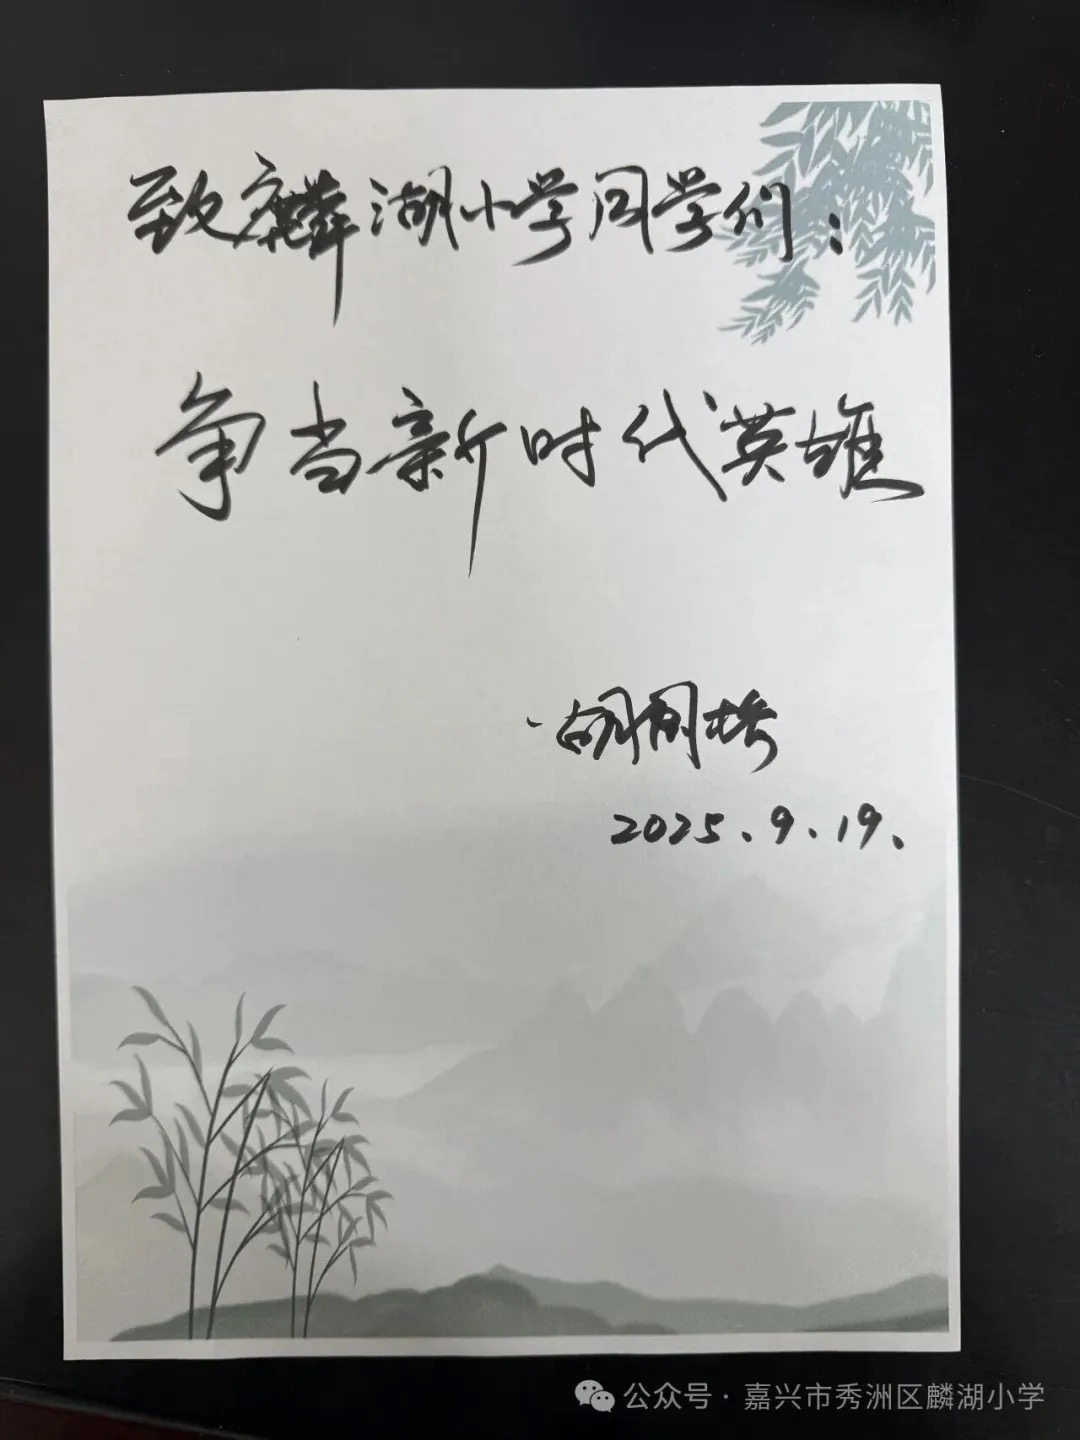 致麟湖小学同学们：
争当新时代英雄
胡国桥
2025.9.19.
公众号·嘉兴市秀洲区麟湖小学